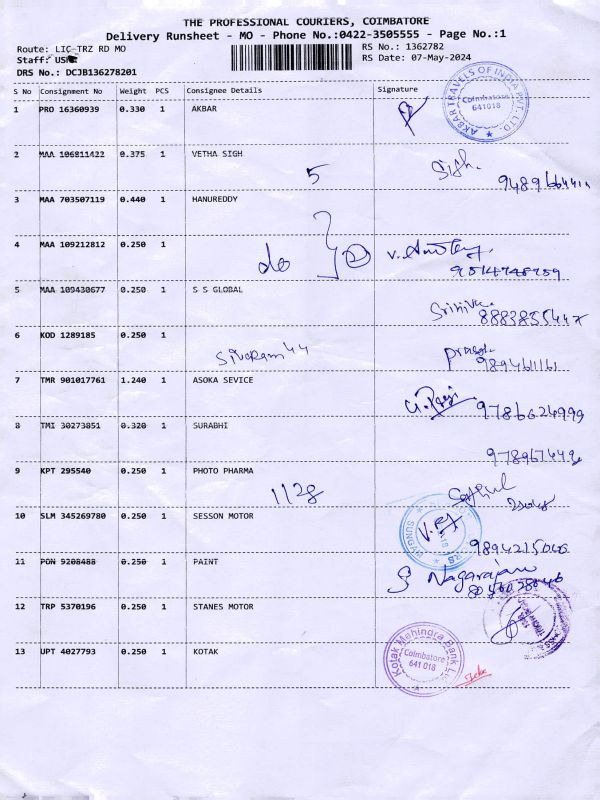 THE PROFESSIONAL COURIERS, COIMBATORE
Delivery Runsheet - MO - Phone No.:0422-3505555 - Page No.:1
Route: LIC-TRZ RD MO
RS No.: 1362782
Staff:
RS Date: 07-May-2024
DRS No.: DCJB136278201
S No Consignment No Weight PCS Consignee Details Signature
1 PRO 16360939 0.330 1 AKBAR
AKBAR TRAVELS OF INDIA PVT. LTD.
Coimbatore
641018
2 MAA 106811422 0.375 1 VETHA SIGH
5
3 MAA 703507119 0.440 1 HANUREDDY
4 MAA 109212812 0.250 1
do
5 MAA 109430677 0.250 1 S S GLOBAL
6 KOD 1289185 0.250 1
Sivaram 44
9894611161
7 TMR 901017761 1.240 1 ASOKA SEVICE
9786624999
8 TMI 30273851 0.320 1 SURABHI
9 KPT 295540 0.250 1 PHOTO PHARMA
1128
10 SLM 345269780 0.250 1 SESSON MOTOR
11 PON 9208488 0.250 1 PAINT
Nagarajan
12 TRP 5370196 0.250 1 STANES MOTOR
13 UPT 4027793 0.250 1 KOTAK
Kotak Mahindra Bank
Coimbatore
641 018